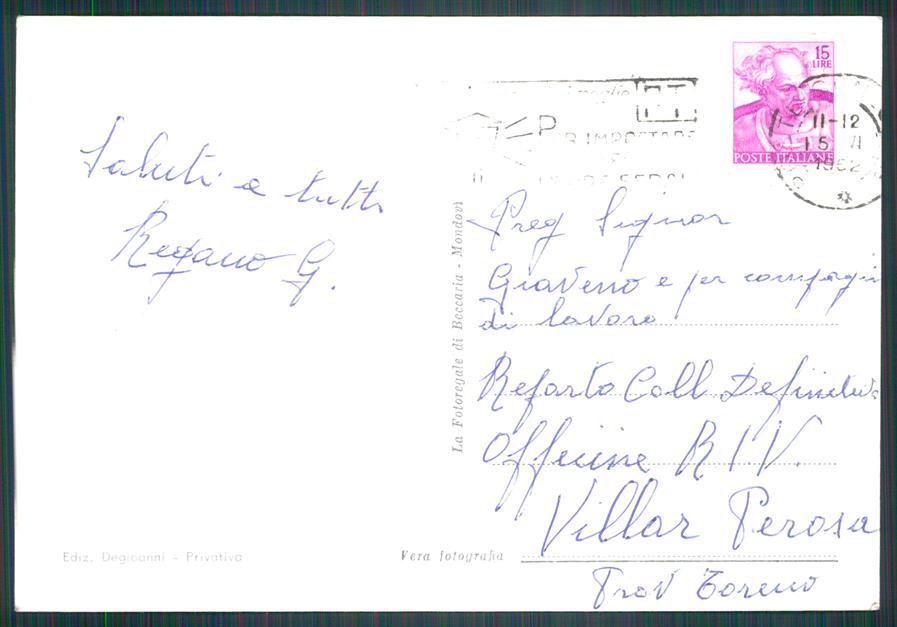 Saluti a tutti
Regano G.
Ediz. Degioanni - Privativa
La Fotoregale di Beccaria - Mondovì
Vera fotografia
15
LIRE
POSTE ITALIANE
11-12
15
1962
Preg Signor
Giaveno e per compagni
di lavoro
Reparto Coll Definitiva
Officine R.I.V.
Villar Perosa
Prov Torino